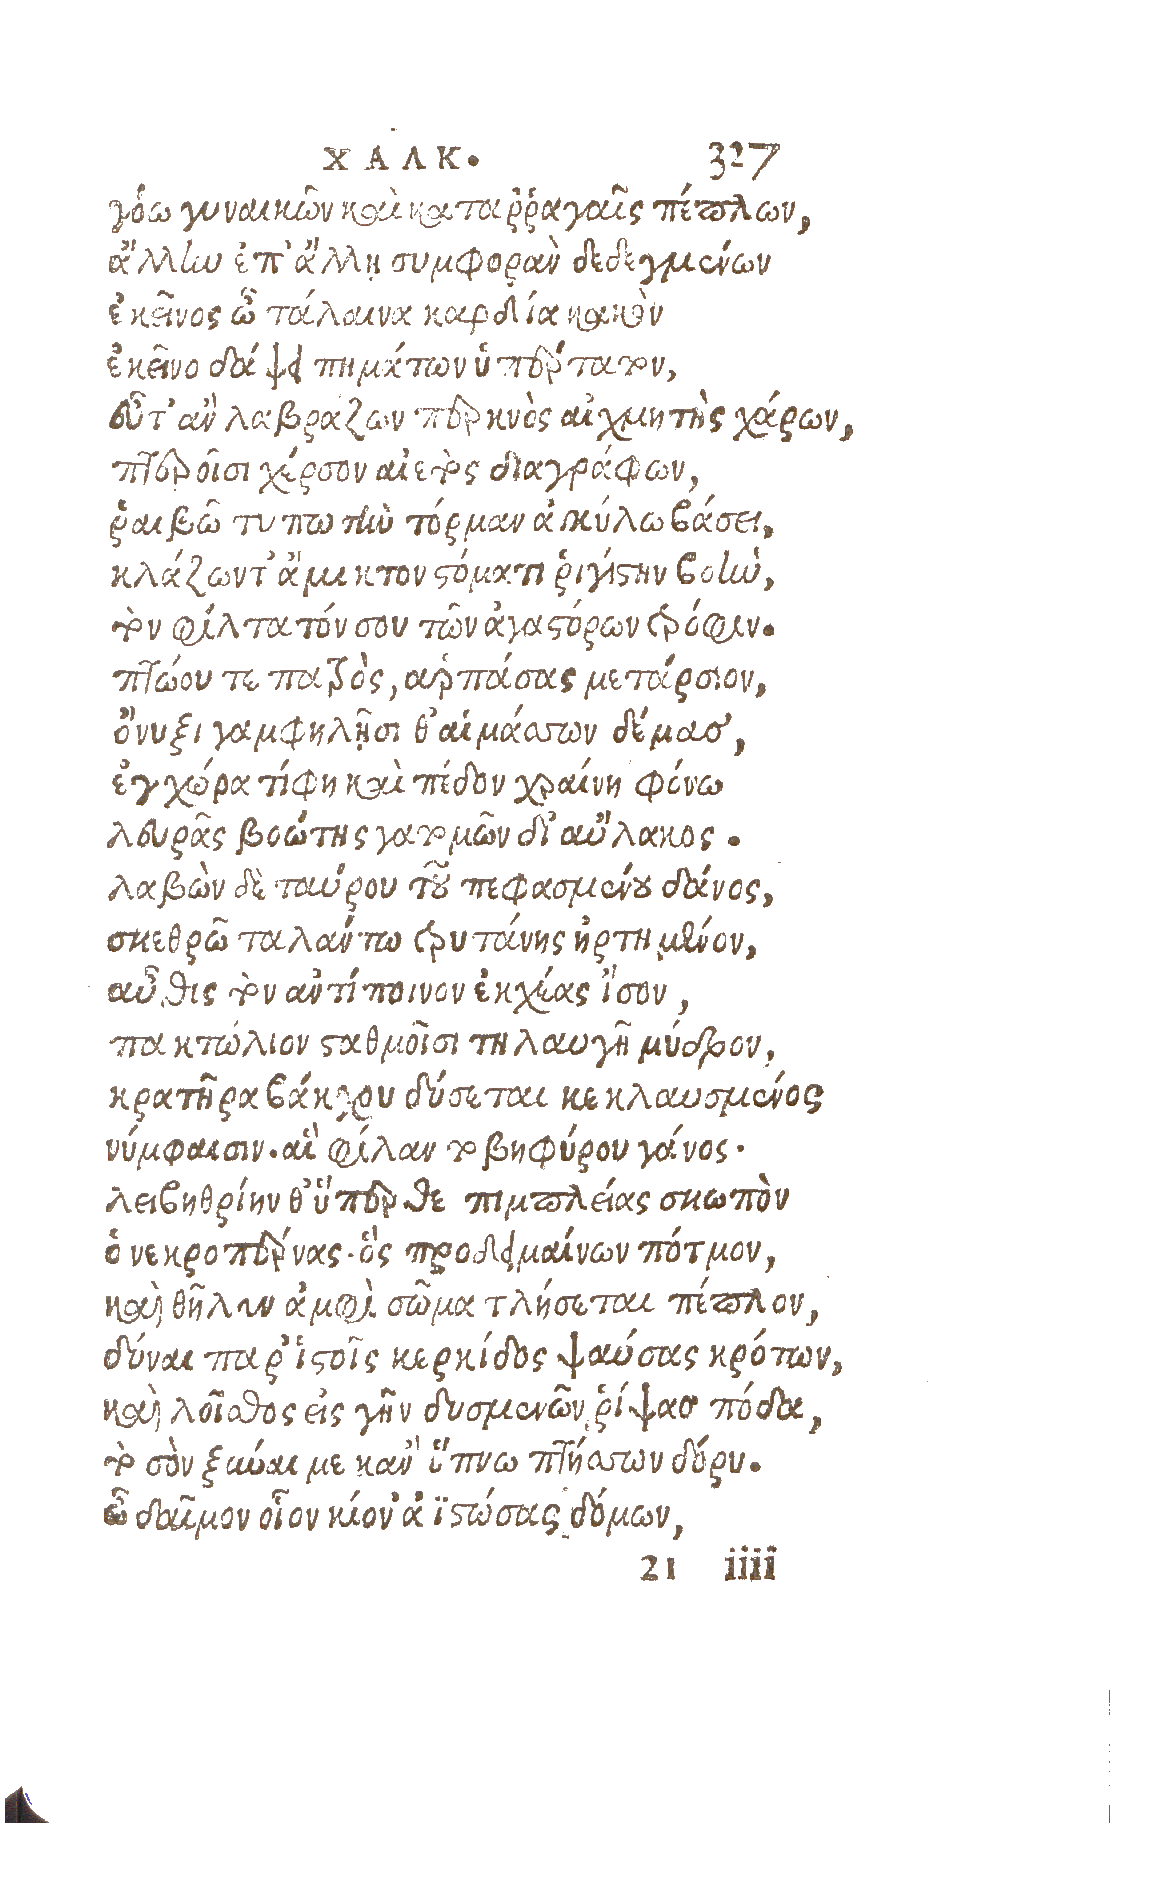 ΧΑΛΚ. 327
γόῳ γυναικῶν καὶ καταῤῥαγαῖς πέπλων,
ἄλλων ἐπ' ἄλλῃ συμφορὰν δεδεγμένων
ἐκεῖνος ὦ τάλαινα καρδία κακὸν
ἐκεῖνο δάψει πημάτων ὑπέρτατον,
οὗτ' ἂν λαβράζων περκνὸς αἰχμητὴς χάρων,
πτεροῖσι χέρσον αἰετὸς διαγράφων,
ῥαιβῷ τυπωτὴν τόρμαν ἀγκύλῳ βάσει,
κλάζων τ' ἄμικτον στόματι ῥιγίστην βοὴν,
τὸν φίλτατόν σου τῶν ἀγαστόρων τρόφιν.
πτώου τε πατρὸς, ἁρπάσας μετάρσιον,
ὄνυξι γαμφηλῇσι θ' αἱμάσσων δέμας,
ἐγχώρα τίφη καὶ πέδον χραίνῃ φόνῳ
λευρᾶς βοώτης γατομῶν δι' αὔλακος.
λαβὼν δὲ ταύρου τοῦ πεφασμένου δάνος,
σκεθρῷ ταλάντῳ τρυτάνης ἠρτημένον,
αὖθις τὸν ἀντίποινον ἐκχέας ἴσον,
πακτώλιον σταθμοῖσι τηλαυγῆ μύδρον,
κρατῆρα βάκχου δύσεται κεκλαυσμένος
νύμφαισιν. αἳ φίλαντο βηφύρου γάνος.
λειβηθρίην θ' ὕπερθε πιμπλείας σκωπὸν
ὁ νεκροπέρνας. ὃς προδειμαίνων πότμον,
καὶ θῆλυν ἀμφὶ σῶμα τλήσεται πέπλον,
δύναι παρ' ἱστοῖς κερκίδος ψαύσας κρότων,
καὶ λοῖσθος εἰς γῆν δυσμενῶν ῥίψας πόδα,
τὸ σὸν ξύναιμε κἀν ὕπνῳ πτήσσων δόρυ.
ὦ δαῖμον οἷον κίον' ἀϊστώσας δόμων,
21 iiii